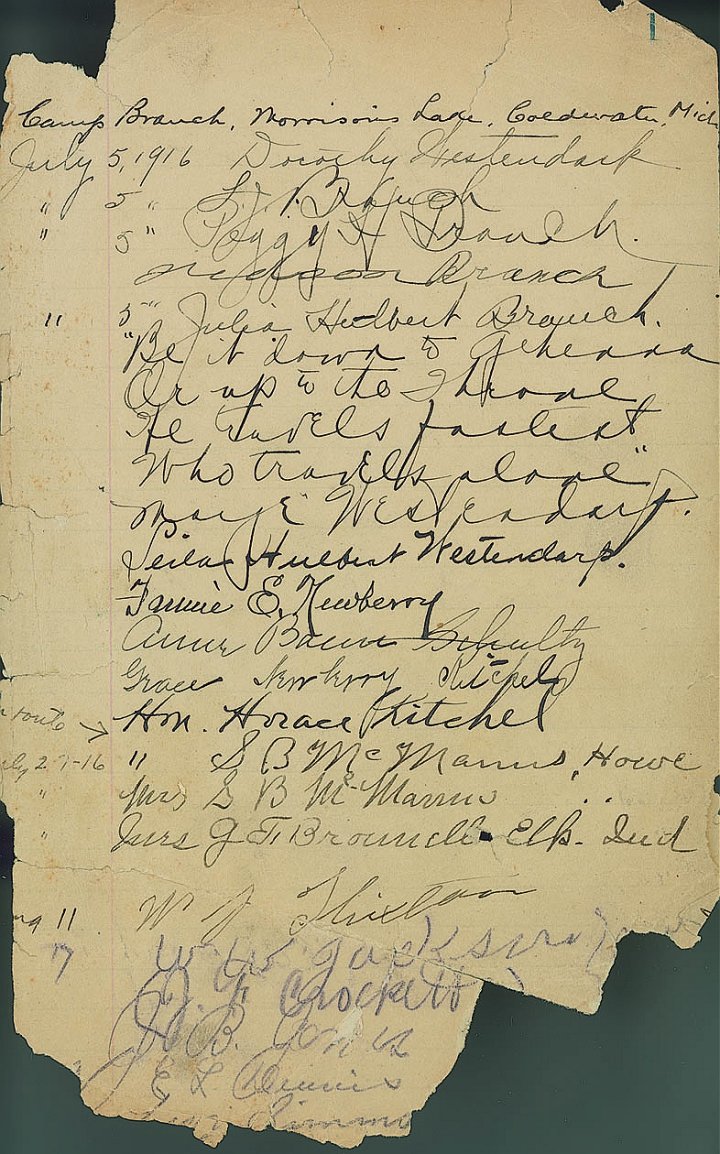 1
Camp Branch, Morrison's Lake, Coldwater, Mich
July 5, 1916 Dorothy Westendarp
" 5 " L. J. Branch
" 5 " Peggy H Branch.
Branch
" 5 " Julia Hulbert Branch.
"Be it down to Gehenna
Or up to the Throne
He travels fastest
Who travels alone"
Marye Westendarp.
Leila Hulbert Westendarp.
Fannie E. Newberry
Anne Schultz
Grace Newberry Kitchel
route → Hon. Horace Kitchel
-16 " S B McManus, Howe
" Mrs S B McManus " "
" Mrs G F. Brownell - Elk. Ind
11 W J
7 W. W. Jackson
J. F Crockett
H B. Jones
E L Dennis